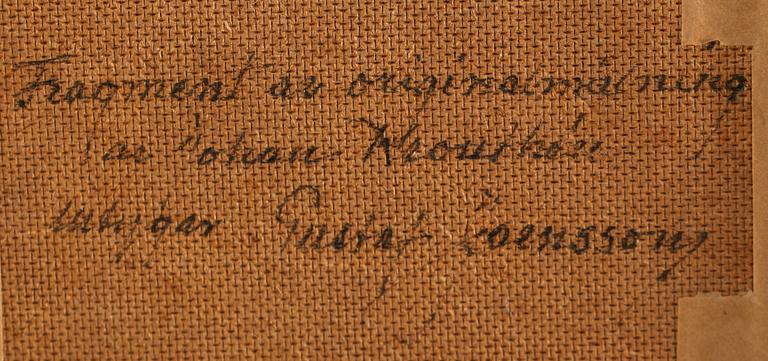 Fragment av originalmålning
av Johan Krouthén
intygar Gustaf